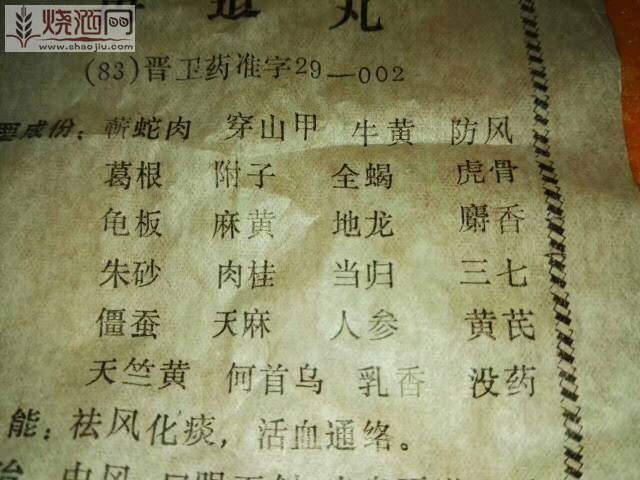 烧酒网
www.shaojiu.com
丸
(83)晋卫药准字29—002
要成份：蕲蛇肉 穿山甲 牛黄 防风
葛根 附子 全蝎 虎骨
龟板 麻黄 地龙 麝香
朱砂 肉桂 当归 三七
僵蚕 天麻 人参 黄芪
天竺黄 何首乌 乳香 没药
能：祛风化痰，活血通络。
治 中风